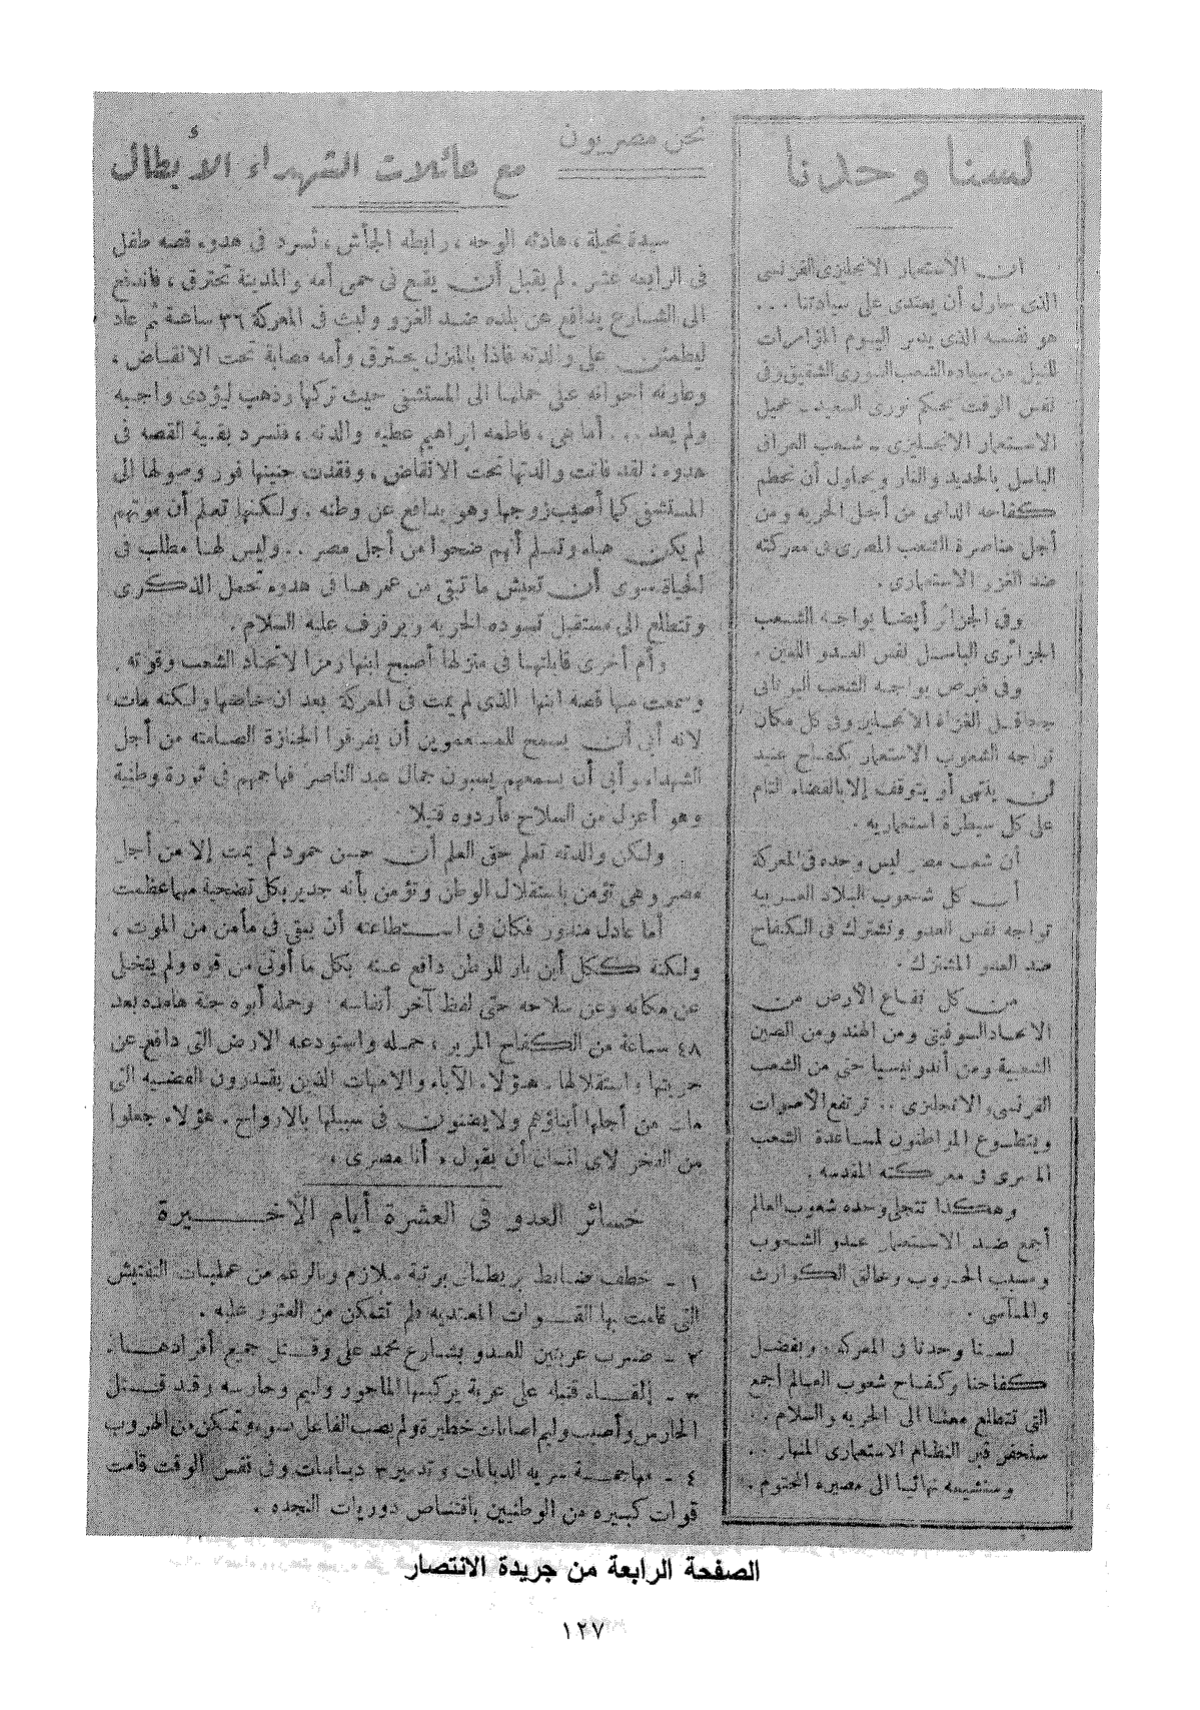 لسنا وحدنا
ان الاستعمار الانجليزى الفرنسى
الذى حاول أن يعتدى على سيادتنا ...
هو نفسه الذى يدبر اليوم المؤامرات
للنيل من سياده الشعب السورى الشقيق وفى
نفس الوقت يحكم نورى السعيد - عميل
الاستعمار الانجليزى - شعب العراق
الباسل بالحديد والنار ويحاول أن يحطم
كفاحه الدامى من أجل الحريه ومن
أجل مناصرة الشعب المصرى فى معركته
ضد الغزو الاستعمارى .
وفى الجزائر أيضا يواجه الشعب
الجزائرى الباسل نفس العدو اللعين .
وفى قبرص يواجه الشعب اليونانى
جحافل الغزاه الانجليز وفى كل مكان
تواجه الشعوب الاستعمار بكفاح عنيد
لن ينتهى أو يتوقف إلا بالقضاء التام
على كل سيطرة استعماريه .
أن شعب مصر ليس وحده فى المعركة
أن كل شعوب البلاد العربيه
تواجه نفس العدو وتشترك فى الكفاح
ضد العدو المشترك .
من كل بقاع الأرض من
الاتحاد السوفيتى ومن الهند ومن الصين
الشعبية ومن أندونيسيا حتى من الشعب
الفرنسى والانجليزى .. ترتفع الأصوات
ويتطوع المواطنون لمساعدة الشعب
المصرى فى معركته المقدسه .
وهكذا تتجلى وحده شعوب العالم
أجمع ضد الاستعمار عدو الشعوب
ومسبب الحروب وخالق الكوارث
والمآسى .
لسنا وحدنا فى المعركه وبفضل
كفاحنا وكفاح شعوب العالم أجمع
التى تتطلع معنا الى الحريه والسلام ..
سنحفر قبر النظام الاستعمارى المنهار ..
وسنشيعه نهائيا الى مصيره المحتوم .
نحن مصريون
مع عائلات الشهداء الأبطال
سيدة نحيلة ، هادئه الوجه ، رابطه الجأش ، تسرد فى هدوء قصه طفل
فى الرابعه عشر . لم يقبل أن يقبع فى حمى أمه والمدينة تحترق ، فاندفع
الى الشارع يدافع عن بلده ضد الغزو ولبث فى المعركة ٣٦ ساعة ثم عاد
ليطمئن على والدته فاذا بالمنزل يحترق وأمه مصابة تحت الانقاض ،
وعاونه اخوانه على حملها الى المستشفى حيث تركها وذهب ليؤدى واجبه
ولم يعد ... أما هى ، فاطمه ابراهيم عطيه والدته ، فتسرد بقية القصه فى
هدوء : لقد فاتت والدتها تحت الانقاض ، وفقدت جنينها فور وصولها الى
المستشفى كما أصيب زوجها وهو يدافع عن وطنه . ولكنها تعلم أن موتهم
لم يكن هباء وتعلم أنهم ضحوا من أجل مصر .. وليس لها مطلب فى
الحياة سوى أن تعيش ما تبقى من عمرها فى هدوء تحمل الذكرى
وتتطلع الى مستقبل تسوده الحريه ويرفرف عليه السلام .
وأم أخرى قابلتها فى منزلها أصبح ابنها رمزا لاتحاد الشعب وقوته .
وسمعت منها قصه ابنها الذى لم يمت فى المعركة بعد ان خاضها ولكنه مات
لانه أبى أن يسمح للمستعمرين أن يفرقوا الجنازة الصامته من أجل
الشهداء وأبى أن يسمعهم يسبون جمال عبد الناصر فهاجمهم فى ثورة وطنية
وهو أعزل من السلاح فأردوه قتيلا .
ولكن والدته تعلم حق العلم أن حسن حمود لم يمت إلا من أجل
مصر وهى تؤمن باستقلال الوطن وتؤمن بأنه جدير بكل تضحية مهما عظمت
أما عادل مندور فكان فى استطاعته أن يبقى فى مأمن من الموت ،
ولكنة ككل أبن بار للوطن دافع عنه بكل ما أوتى من قوه ولم يتخل
عن مكانه وعن سلاحه حتى لفظ آخر أنفاسه . وحمله أبوه جثة هامده بعد
٤٨ ساعة من الكفاح المرير ، حمله واستودعه الارض التى دافع عن
حريتها واستقلالها . هؤلاء الآباء والامهات الذين يقدرون القضيه التى
مات من أجلها أبناؤهم ولا يضنون فى سبيلها بالارواح . هؤلاء جعلوا
من الفخر لأى انسان أن يقول « أنا مصرى » .
خسائر العدو فى العشرة أيام الاخيرة
١ - خطف ضابط بريطانى برتبة ملازم وبالرغم من عمليات التفتيش
التى قامت بها القوات المعتديه لم تتمكن من العثور عليه .
٢ - ضرب عربتين للعدو بشارع محمد على وقتل جميع أفرادها .
٣ - إلقاء قنبله على عربة يركبها الماجور وليم وحارسه وقد قتل
الحارس وأصيب وليم اصابات خطيرة ولم يصب الفاعل بسوء وتمكن من الهروب
٤ - مهاجمة سريه الدبابات وتدمير ٣ دبابات وفى نفس الوقت قامت
قوات كبيره من الوطنيين باقتناص دوريات النجده .
الصفحة الرابعة من جريدة الانتصار
١٢٧